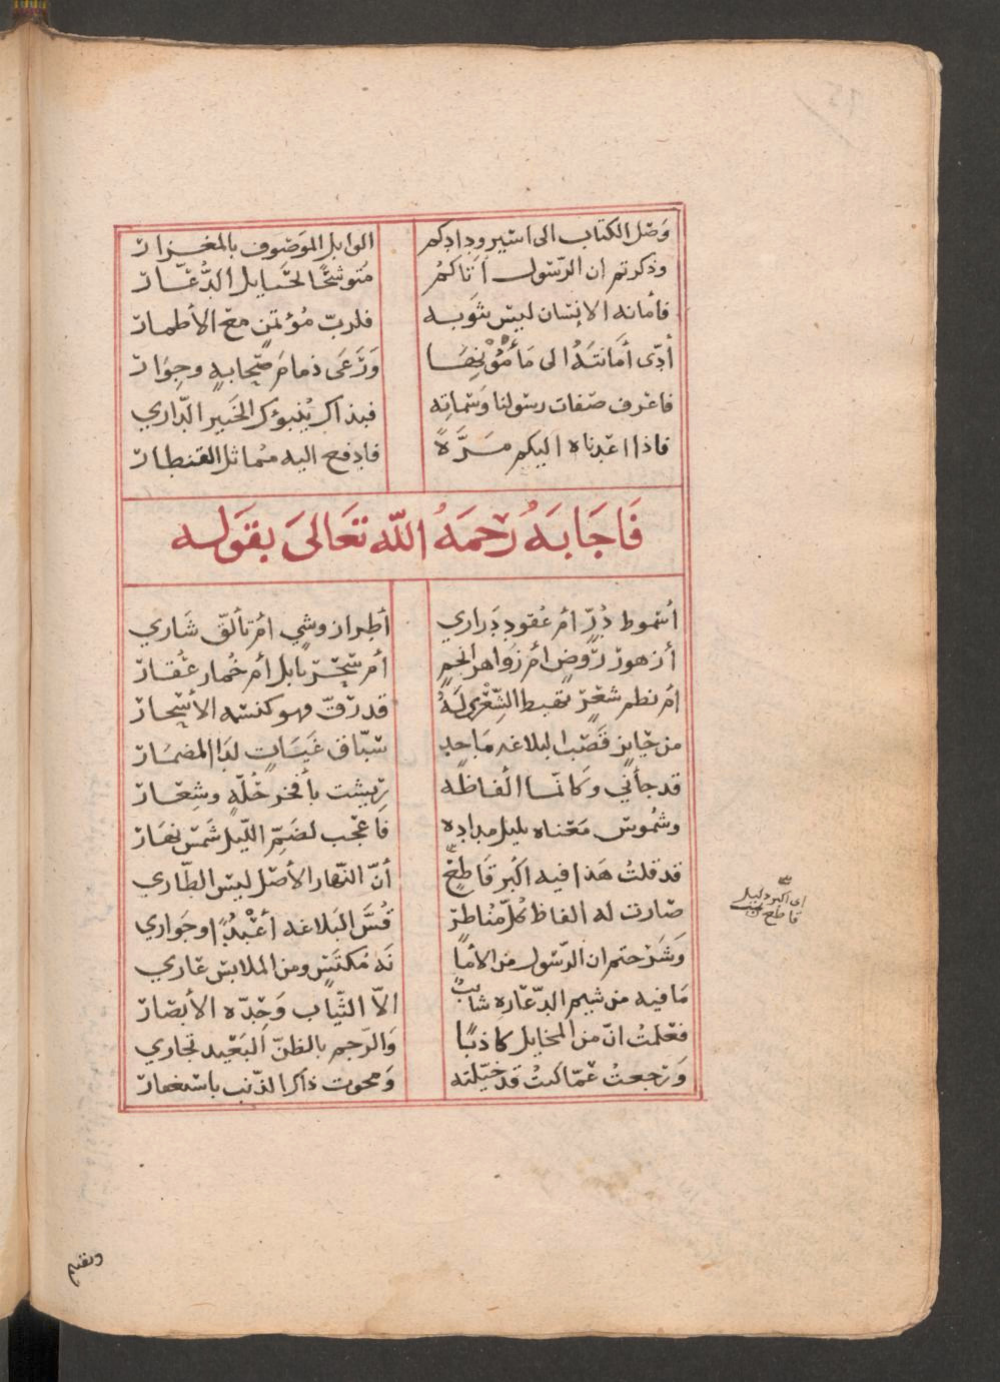 وَصَل الكتاب الى اسير ودادكم الوابل الموَصوف بالمغزار
وذكرتم ان الرّسول اتاكمُ مُتوشّحًا لحَبايل الدُّعّار
فأمانة الانسان ليسَ ثوَبه فلربّ مُؤتمن مع الأطمار
أدّى أمَانتَهُ الى مَأمُوْنِهَا وَرَعَى ذمامَ صَحابهِ وجوَار
فاعرف صفات رسولنا وسَماته فبذاك يُنبؤك الخَبير الدّاري
فاذا اعَدناه اليكم مَرَّةً فادفع اليه مماثل القنطار
فَاجَابَهُ رَحمَهُ اللّه تعَالىَ بقوَله
أسُموط دُرّ أمر عُقود دَراري أطراز وشي أمر تألّق شَاري
أزهور رَوض أمر زَواهر انجم أمر سِحرَ بابل أمر خُمار عُقار
امَ نظم شعْرٍ تهبط الشِّعْرى لَهُ قد رَقّ فهو كنسمة الأسَحار
من حَايز قصَب البلاغه مَاجد سَبّاق غَايَاتٍ لدَا المضمَار
قد جاَني وكانّما الفاظه زيشت بأفخر حُلّةٍ وشِعَار
وشمُوس مَعناه بليل مداده فاعجب لضَمّ اللّيل شمَسَ نهَار
قد قلتُ هَذا فيه اكبر قَاطعٍ أنّ النهار الأصَل ليسَ الطّاري
صَارت له الفاظ كلّ مُناطِرٍ قُسَّ البَلاغه أعْبُدًا وجَواري
وَشرَحتم ان الرّسول من الأمَا نَه مُكتَسٍ ومن الملابس عَاري
مَا فيه من شيم الدّعَاره شابٌ الاّ الثّياب وَحِدّه الأبصَار
فعَلمتُ انّ من المخايل كاذبًا وَالرّجم بالظنّ البَعيد تجاري
وَرَجعتُ عَمّا كنتُ قد خيّلته وَمحوت ذاكر الذنب باستغفار
اى اكبر دليل
قاطع